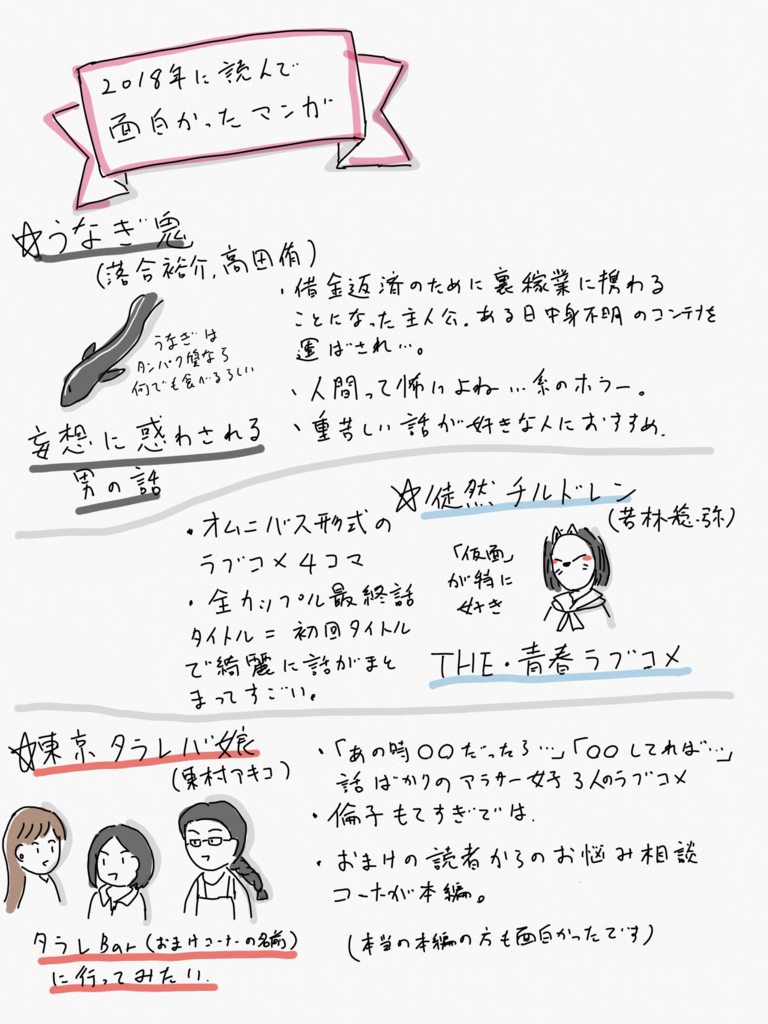 2018年に読んで
面白かったマンガ
☆うなぎ鬼
(落合裕介,高田侑)
うなぎは
タンパク質なら
何でも食べるらしい
妄想に惑わされる
男の話
・借金返済のために裏稼業に携わる
ことになった主人公。ある日中身不明のコンテナを
運ばされ…。
・人間って怖いよね…系のホラー。
・重苦しい話が好きな人におすすめ.
☆徒然チルドレン
(若林稔弥)
「仮面」
が特に
好き
THE・青春ラブコメ
・オムニバス形式の
ラブコメ4コマ
・全カップル最終話
タイトル=初回タイトル
で綺麗に話がまと
まってすごい。
☆東京タラレバ娘
(東村アキコ)
タラレBar(おまけコーナーの名前)
に行ってみたい.
・「あの時〇〇だったら…」「〇〇してれば…」
話ばかりのアラサー女子3人のラブコメ
・倫子もてすぎでは.
・おまけの読者からのお悩み相談
コーナーが本編。
(本当の本編の方も面白かったです)